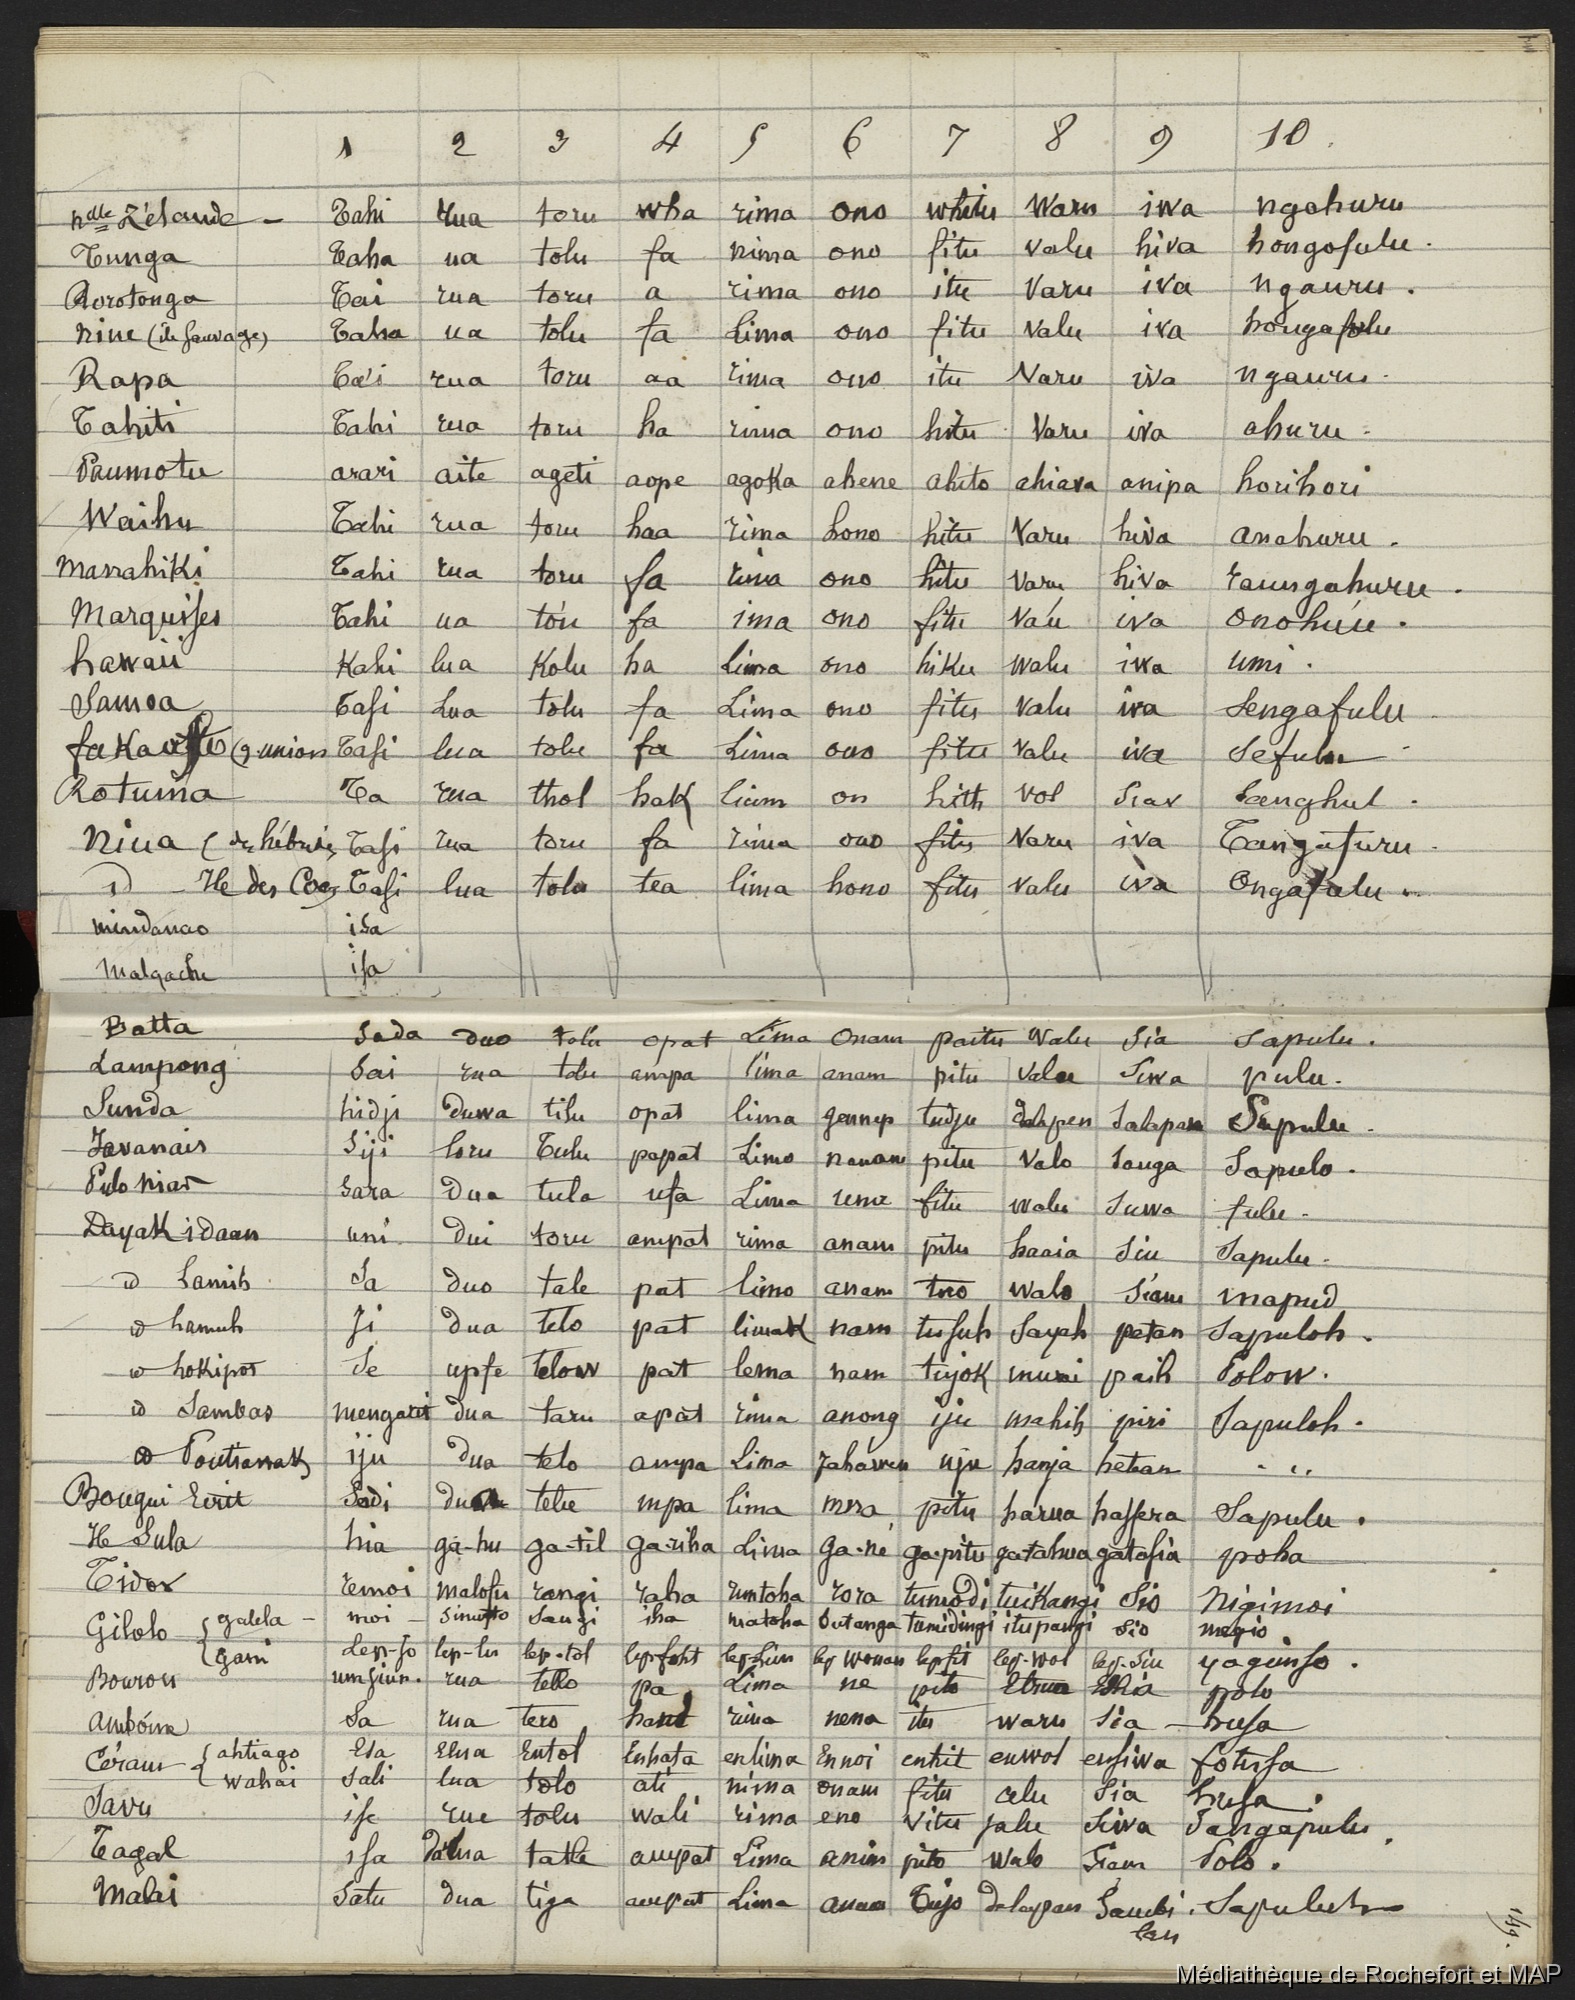 1 2 3 4 5 6 7 8 9 10.
nlle Zélande - Tahi rua toru wha rima ono whitu Waru iwa ngahuru
Tunga Taha ua tolu fa nima ono fitu valu hiva hongofulu.
Rorotonga Tai rua toru a rima ono itu Varu iva ngauru.
nine (ile Sauvage) Taha ua tolu fa Lima ono fitu Valu iva hongafulu
Rapa Ta'i rua toru aa rima ono itu Varu iva ngauru.
Tahiti Tahi rua toru ha rima ono hitu Varu iva ahuru.
Paumotu arari aite ageti aope agoka ahene ahito ahiava anipa horihori
Waihu Tahi rua toru haa rima hono hitu Varu hiva anahuru.
Manahiki Tahi rua toru fa rima ono hitu varu hiva raungahuru.
Marquises Tahi ua tóu fa ima ono fitu Vaú iva onohúu.
hawaii Kahi lua Kolu ha Lima ono hiku walu iwa umi.
Samoa Tasi Lua tolu fa Lima ono fitu Valu iva Sengafulu
(g. union Tasi lua tolu fa Lima ono fitu Valu iva Sefulu
Rotuma Ta rua thol hak lium on hith vol Siav Sanghul.
Niua Tasi rua toru fa rima ono fitu Varu iva Tangafuru.
id - Ile des Cocos Tasi lua tolu tea lima hono fitu Valu iva Ongafulu
mindanao isa
Malgache isa
Batta Sada duo tolu opat Lima Onam paitu Walu Sia Sapulu.
Lampong Sai rua tolu ampa lima anam pitu Valu Siwa pulu.
Sunda hidji Duwa tilu opat lima gennep tudju dalapen Salapan Sapulu.
Javanais Siji loru Tulu papat Limo nanam pitu Valo Songa Sapulo.
Pulo nias Sara Dua tula ufa Lima unu fitu walu Suwa fulu.
Dayak idaan uni Dui toru ampat rima anam pitu haaia Siu Sapulu.
id Lanih Sa duo tale pat limo anam walo Siam inapud
id hamuh Ji dua telo pat limak nam tusuh Sayah petan Sapuloh.
id hokipot Se upfe telow pat lema nam tujok muni paih Polow.
id Sambas mengatit dua taru apat rima anong iju mahih piri Sapuloh.
id Pontianak iju Dua telo ampa Lima jahawen uju hanja hetan - "
Bougui Sedi telu mpa lima pitu harua hassera Sapulu.
Ile Sula hia ga-hu ga-til ga-riha Lima ga-né ga-pitu ga-tahua gatasia poha
Tidor remoi malofu rangi raha runtoha rora tumodi tuikangi Sio Nigimoi
Gilolo galela - moi - Sinuto Sangi iha matoha butanga tumidingi itupangi Sio megio
gani Lep-so lep-lu lep-tol lep-foht lep-Lim lep wonan lep-fit lep-wol lep-Siu yagimso.
Bouron umsiun. rua tello pa Lima ne pito Etrua Eshia polo
Amboine Sa rua tero haat rima nena itu waru Sia - husa
Céram ahtiago Esa Elua Entol Enhata enlima Ennoi enhit enwol ensiwa fotusa
wahai Sali lua tolo ati nima onam fitu alu Sia husa.
Savu ise rue tolu wali rima eno Vitu jalu Siva Sangapulu.
Tagal isa Dalua tatla ampat Lima anim pito walo Siam Polo.
Malai Satu dua tiga ampat Lima anam Tujo dalapan Sambi. Sapuluh
lan
Médiathèque de Rochefort et MAP